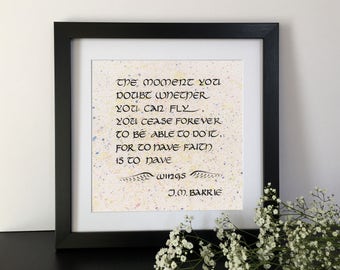 THE MOMENT YOU
DOUBT WHETHER
YOU CAN FLY
YOU CEASE FOREVER
TO BE ABLE TO DO IT.
FOR TO HAVE FAITH
IS TO HAVE
WINGS
J.M. BARRIE